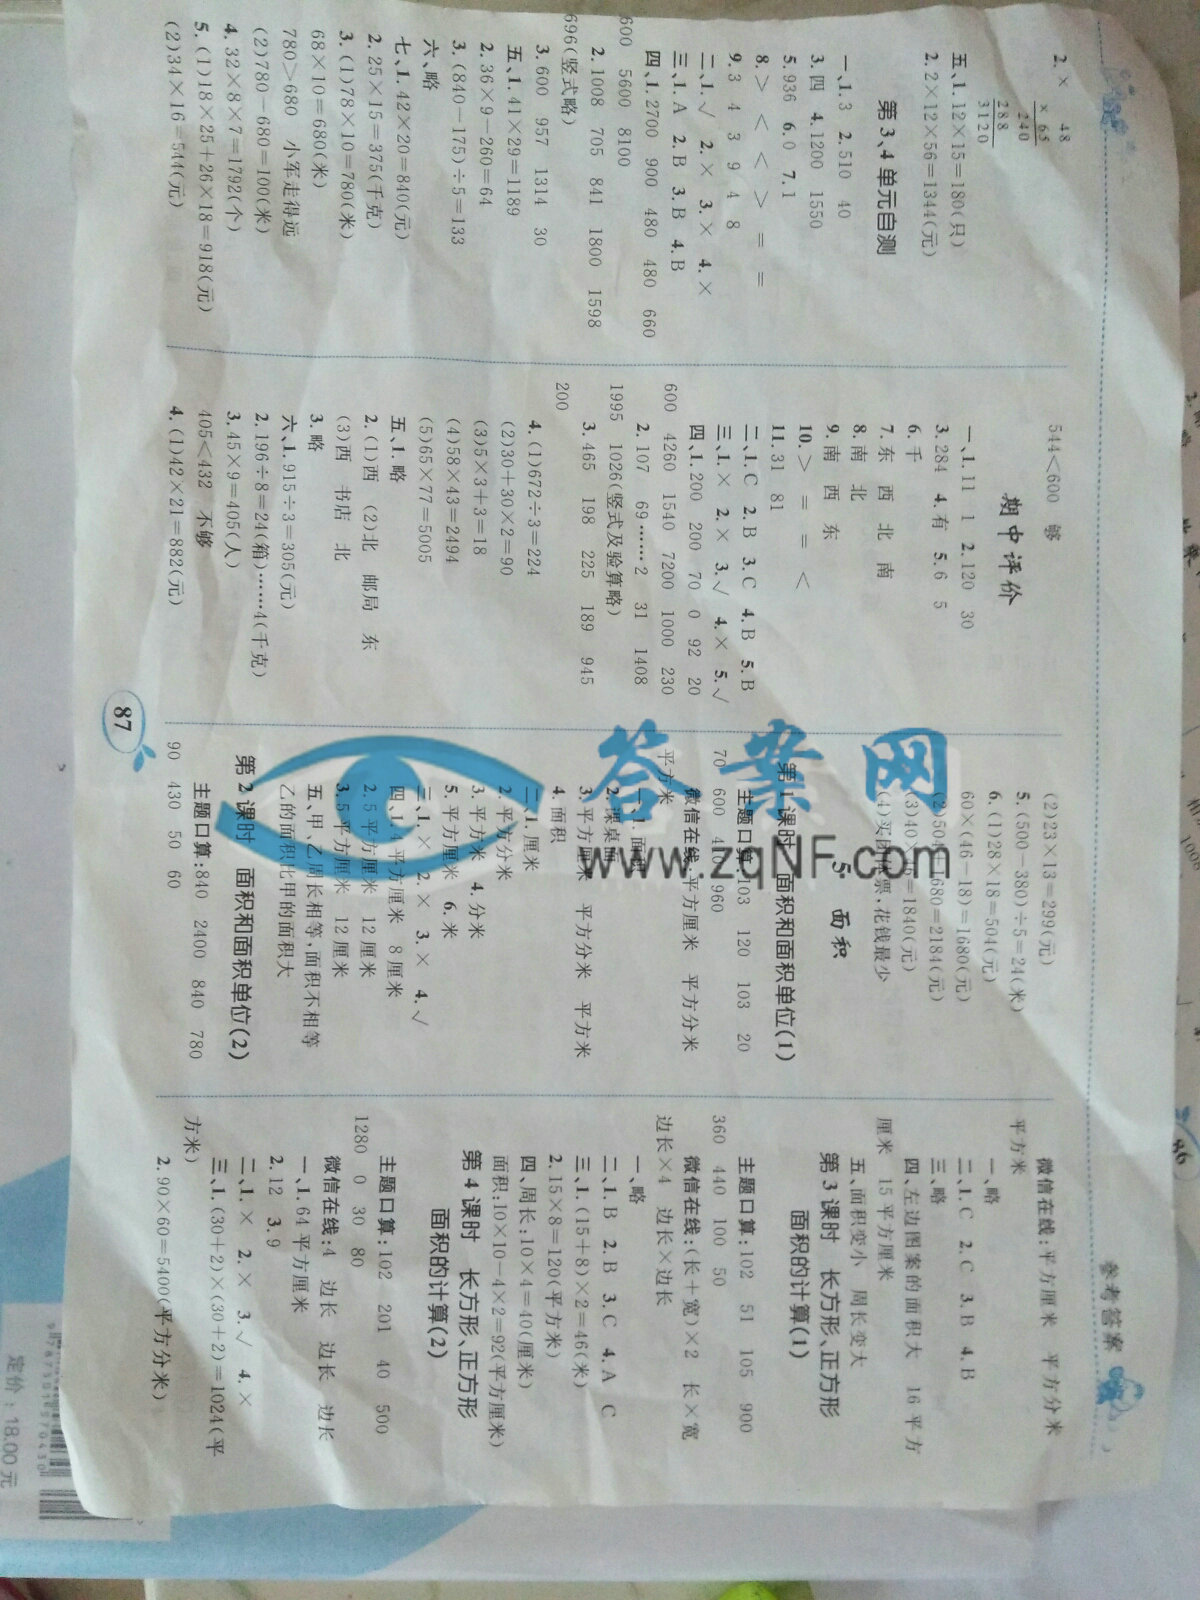 参考答案
2. ×
48
× 65
240
288
3120
五、1. 12×15=180(只)
2. 2×12×56=1344(元)
第 3、4 单元自测
一、1. 3 2. 510 40
3. 四 4. 1200 1550
5. 936 6. 0 7. 1
8. > < < > = =
9. 3 4 3 9 4 8
二、1. √ 2. × 3. × 4. ×
三、1. A 2. B 3. B 4. B
四、1. 2700 900 480 480 660
600 5600 8100
2. 1008 705 841 1800 1598
696(竖式略)
3. 600 957 1314 30
五、1. 41×29=1189
2. 36×9-260=64
3. (840-175)÷5=133
六、略
七、1. 42×20=840(元)
2. 25×15=375(千克)
3. (1)78×10=780(米)
68×10=680(米)
780>680 小军走得远
(2)780-680=100(米)
4. 32×8×7=1792(个)
5. (1)18×25+26×18=918(元)
(2)34×16=544(元)
544<600 够
期中评价
一、1. 11 1 2. 120 30
3. 284 4. 有 5. 6 5
6. 千
7. 东 西 北 南
8. 南 北
9. 南 西 东
10. > = = <
11. 31 81
二、1. C 2. B 3. C 4. B 5. B
三、1. × 2. × 3. √ 4. × 5. √
四、1. 200 200 70 0 92 20
600 4260 1540 7200 1000 230
2. 107 69……2 31 1408
1995 1026(竖式及验算略)
3. 465 198 225 189 945
200
4. (1)672÷3=224
(2)30+30×2=90
(3)5×3+3=18
(4)58×43=2494
(5)65×77=5005
五、1. 略
2. (1)西 (2)北 邮局 东
(3)西 书店 北
3. 略
六、1. 915÷3=305(元)
2. 196÷8=24(箱)……4(千克)
3. 45×9=405(人)
405<432 不够
4. (1)42×21=882(元)
(2)23×13=299(元)
5. (500-380)÷5=24(米)
6. (1)28×18=504(元)
60×(46-18)=1680(元)
(2)504 680=2184(元)
(3)40× =1840(元)
(4)买团体票,花钱最少
5 面积
第 1 课时 面积和面积单位(1)
主题口算:103 120 103 20
70 600 4 960
微信在线:平方厘米 平方分米
平方米
一、1. 面积
2. 课桌面
3. 平方厘米 平方分米 平方米
4. 面积
二、1. 厘米
2. 平方分米
3. 平方米 4. 分米
5. 平方厘米 6. 米
三、1. × 2. × 3. × 4. √
四、1. 4 平方厘米 8 厘米
2. 5 平方厘米 12 厘米
3. 5 平方厘米 12 厘米
五、甲、乙周长相等,面积不相等
乙的面积比甲的面积大
第 2 课时 面积和面积单位(2)
主题口算:840 2400 840 780
90 430 50 60
微信在线:平方厘米 平方分米
平方米
一、略
二、1. C 2. C 3. B 4. B
三、略
四、左边图案的面积大 16 平方
厘米 15 平方厘米
五、面积变小 周长变大
第 3 课时 长方形、正方形
面积的计算(1)
主题口算:102 51 105 900
360 440 100 50
微信在线:(长+宽)×2 长×宽
边长×4 边长×边长
一、略
二、1. B 2. B 3. C 4. A C
三、1. (15+8)×2=46(米)
2. 15×8=120(平方米)
四、周长:10×4=40(厘米)
面积:10×10-4×2=92(平方厘米)
第 4 课时 长方形、正方形
面积的计算(2)
主题口算:102 201 40 500
1280 0 30 80
微信在线:4 边长 边长 边长
一、1. 64 平方厘米
2. 12 3. 9
二、1. × 2. × 3. √ 4. ×
三、1. (30+2)×(30+2)=1024(平
方米)
2. 90×60=5400(平方分米)
87
答案网
www.zqNF.com
86
定价:18.00 元